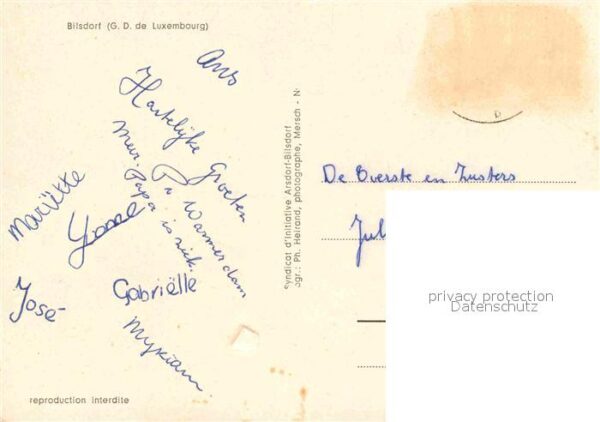 Bilsdorf (G. D. de Luxembourg)
Ans
Hartelijke Groeten
Pr Warmerdam
Meur. Papa is ziek.
Mariëtte
José
Gabriëlle
Myriam
reproduction interdite
Syndicat d'Initiative Arsdorf-Bilsdorf
ogr.: Ph. Heirand, photographe, Mersch - N
D
De Overste en Zusters
Jul
privacy protection
Datenschutz